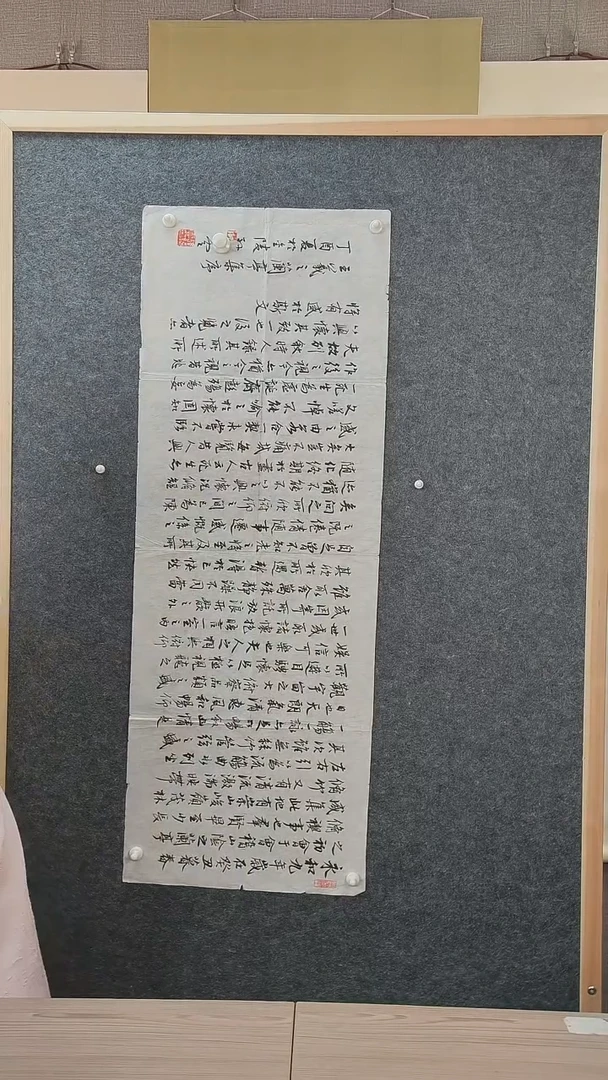 永和九年歲在癸丑暮春
之初會于會稽山陰之蘭亭
脩禊事也群賢畢至少長
咸集此地有崇山峻領茂林
脩竹又有清流激湍映帶
左右引以為流觴曲水列坐
其次雖無絲竹管弦之盛
一觴一詠亦足以暢敘幽情是
日也天朗氣清惠風和暢仰
觀宇宙之大俯察品類之盛
所以遊目騁懷足以極視聽之
娛信可樂也夫人之相與俯仰
一世或取諸懷抱晤言一室之內
或因寄所託放浪形骸之外
雖取舍萬殊靜躁不同當
其欣於所遇暫得於己快然
自足曾不知老之將至及其所
之既倦情隨事遷感慨係之
矣向之所欣俯仰之間以為陳
迹猶不能不以之興懷況脩短
隨化終期於盡古人云死生亦
大矣豈不痛哉每覽昔人興
感之由若合一契未嘗不臨
文嗟悼不能喻之於懷固知
一死生為虛誕齊彭殤為妄
作後之視今亦猶今之視昔悲
夫故列敘時人錄其所述所
以興懷其致一也後之覽者亦
將有感於斯文
王羲之蘭亭集序
丁酉夏於金陵